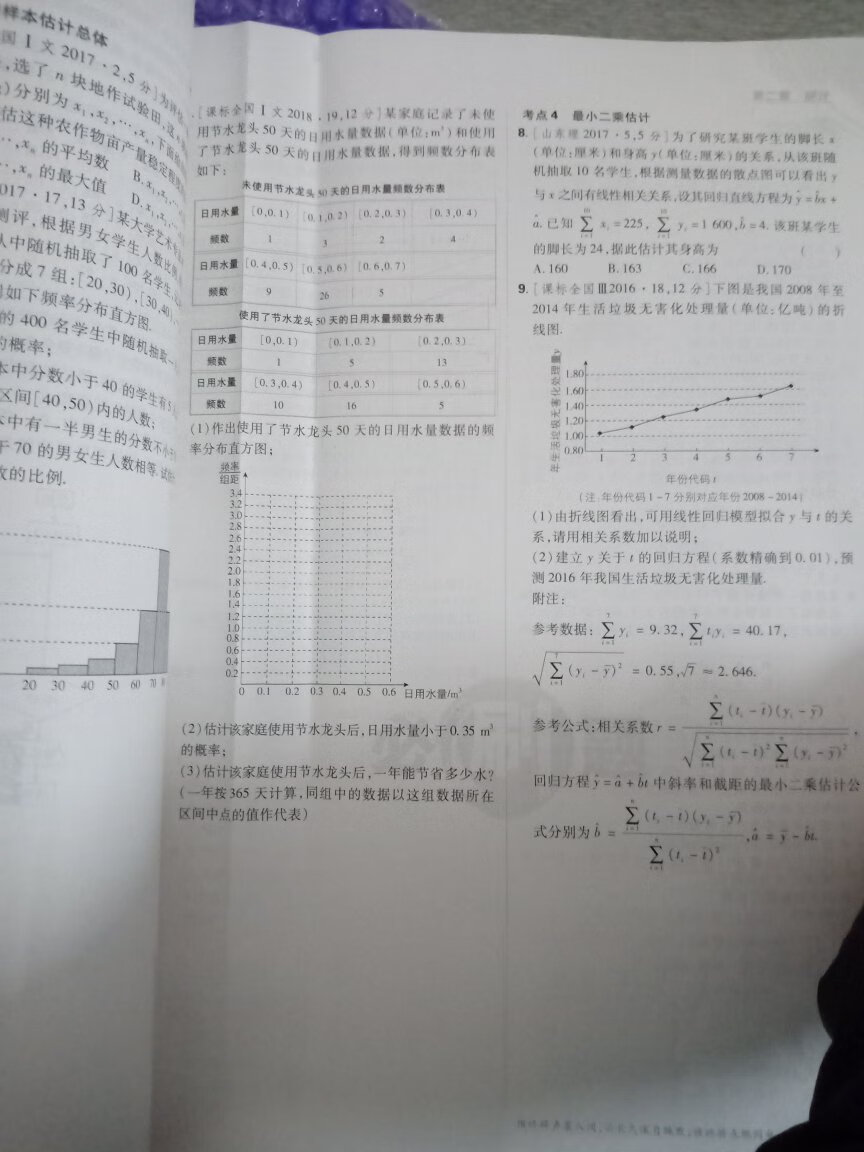 样本估计总体
国Ⅰ文2017·2,5分]为评估
,选了n块地作试验田.这n
)分别为x₁,x₂,…,xₙ,下面
估这种农作物亩产量稳定程度
…,xₙ的平均数 B.x₁,x₂,…
…,xₙ的最大值 D.x₁,x₂,
017·17,13分]某大学艺术
测评,根据男女学生人数比例
从中随机抽取了100名学生
分成7组:[20,30),[30,40),
如下频率分布直方图.
的400名学生中随机抽取一
的概率;
本中分数小于40的学生有5
区间[40,50)内的人数;
本中有一半男生的分数不小于
于70的男女生人数相等.试
数的比例.
20 30 40 50 60 70
[课标全国Ⅰ文2018·19,12分]某家庭记录了未使
用节水龙头50天的日用水量数据(单位:m³)和使用
了节水龙头50天的日用水量数据,得到频数分布表
如下:
未使用节水龙头50天的日用水量频数分布表
日用水量 [0,0.1) [0.1,0.2) [0.2,0.3) [0.3,0.4)
频数 1 3 2 4
日用水量 [0.4,0.5) [0.5,0.6) [0.6,0.7)
频数 9 26 5
使用了节水龙头50天的日用水量频数分布表
日用水量 [0,0.1) [0.1,0.2) [0.2,0.3)
频数 1 5 13
日用水量 [0.3,0.4) [0.4,0.5) [0.5,0.6)
频数 10 16 5
(1)作出使用了节水龙头50天的日用水量数据的频
率分布直方图;
频率
组距
3.4
3.2
3.0
2.8
2.6
2.4
2.2
2.0
1.8
1.6
1.4
1.2
1.0
0.8
0.6
0.4
0.2
0 0.1 0.2 0.3 0.4 0.5 0.6 日用水量/m³
(2)估计该家庭使用节水龙头后,日用水量小于0.35 m³
的概率;
(3)估计该家庭使用节水龙头后,一年能节省多少水?
(一年按365天计算,同组中的数据以这组数据所在
区间中点的值作代表)
考点4 最小二乘估计
8.[山东理2017·5,5分]为了研究某班学生的脚长x
(单位:厘米)和身高y(单位:厘米)的关系,从该班随
机抽取10名学生,根据测量数据的散点图可以看出y
与x之间有线性相关关系,设其回归直线方程为ŷ=b̂x+
â.已知∑ᵢ₌₁¹⁰xᵢ=225,∑ᵢ₌₁¹⁰yᵢ=1 600,b̂=4.该班某学生
的脚长为24,据此估计其身高为 ( )
A.160 B.163 C.166 D.170
9.[课标全国Ⅲ2016·18,12分]下图是我国2008年至
2014年生活垃圾无害化处理量(单位:亿吨)的折
线图.
年生活垃圾无害化处理量y
1.80
1.60
1.40
1.20
1.00
0.80
1 2 3 4 5 6 7
年份代码t
(注:年份代码1~7分别对应年份2008~2014)
(1)由折线图看出,可用线性回归模型拟合y与t的关
系,请用相关系数加以说明;
(2)建立y关于t的回归方程(系数精确到0.01),预
测2016年我国生活垃圾无害化处理量.
附注:
参考数据:∑ᵢ₌₁⁷yᵢ=9.32,∑ᵢ₌₁⁷tᵢyᵢ=40.17,
√(∑ᵢ₌₁⁷(yᵢ-ȳ)²)=0.55,√7≈2.646.
参考公式:相关系数r=∑ᵢ₌₁ⁿ(tᵢ-t̄)(yᵢ-ȳ)/√(∑ᵢ₌₁ⁿ(tᵢ-t̄)²∑ᵢ₌₁ⁿ(yᵢ-ȳ)²),
回归方程ŷ=â+b̂t中斜率和截距的最小二乘估计公
式分别为b̂=∑ᵢ₌₁ⁿ(tᵢ-t̄)(yᵢ-ȳ)/∑ᵢ₌₁ⁿ(tᵢ-t̄)²,â=ȳ-b̂t̄.